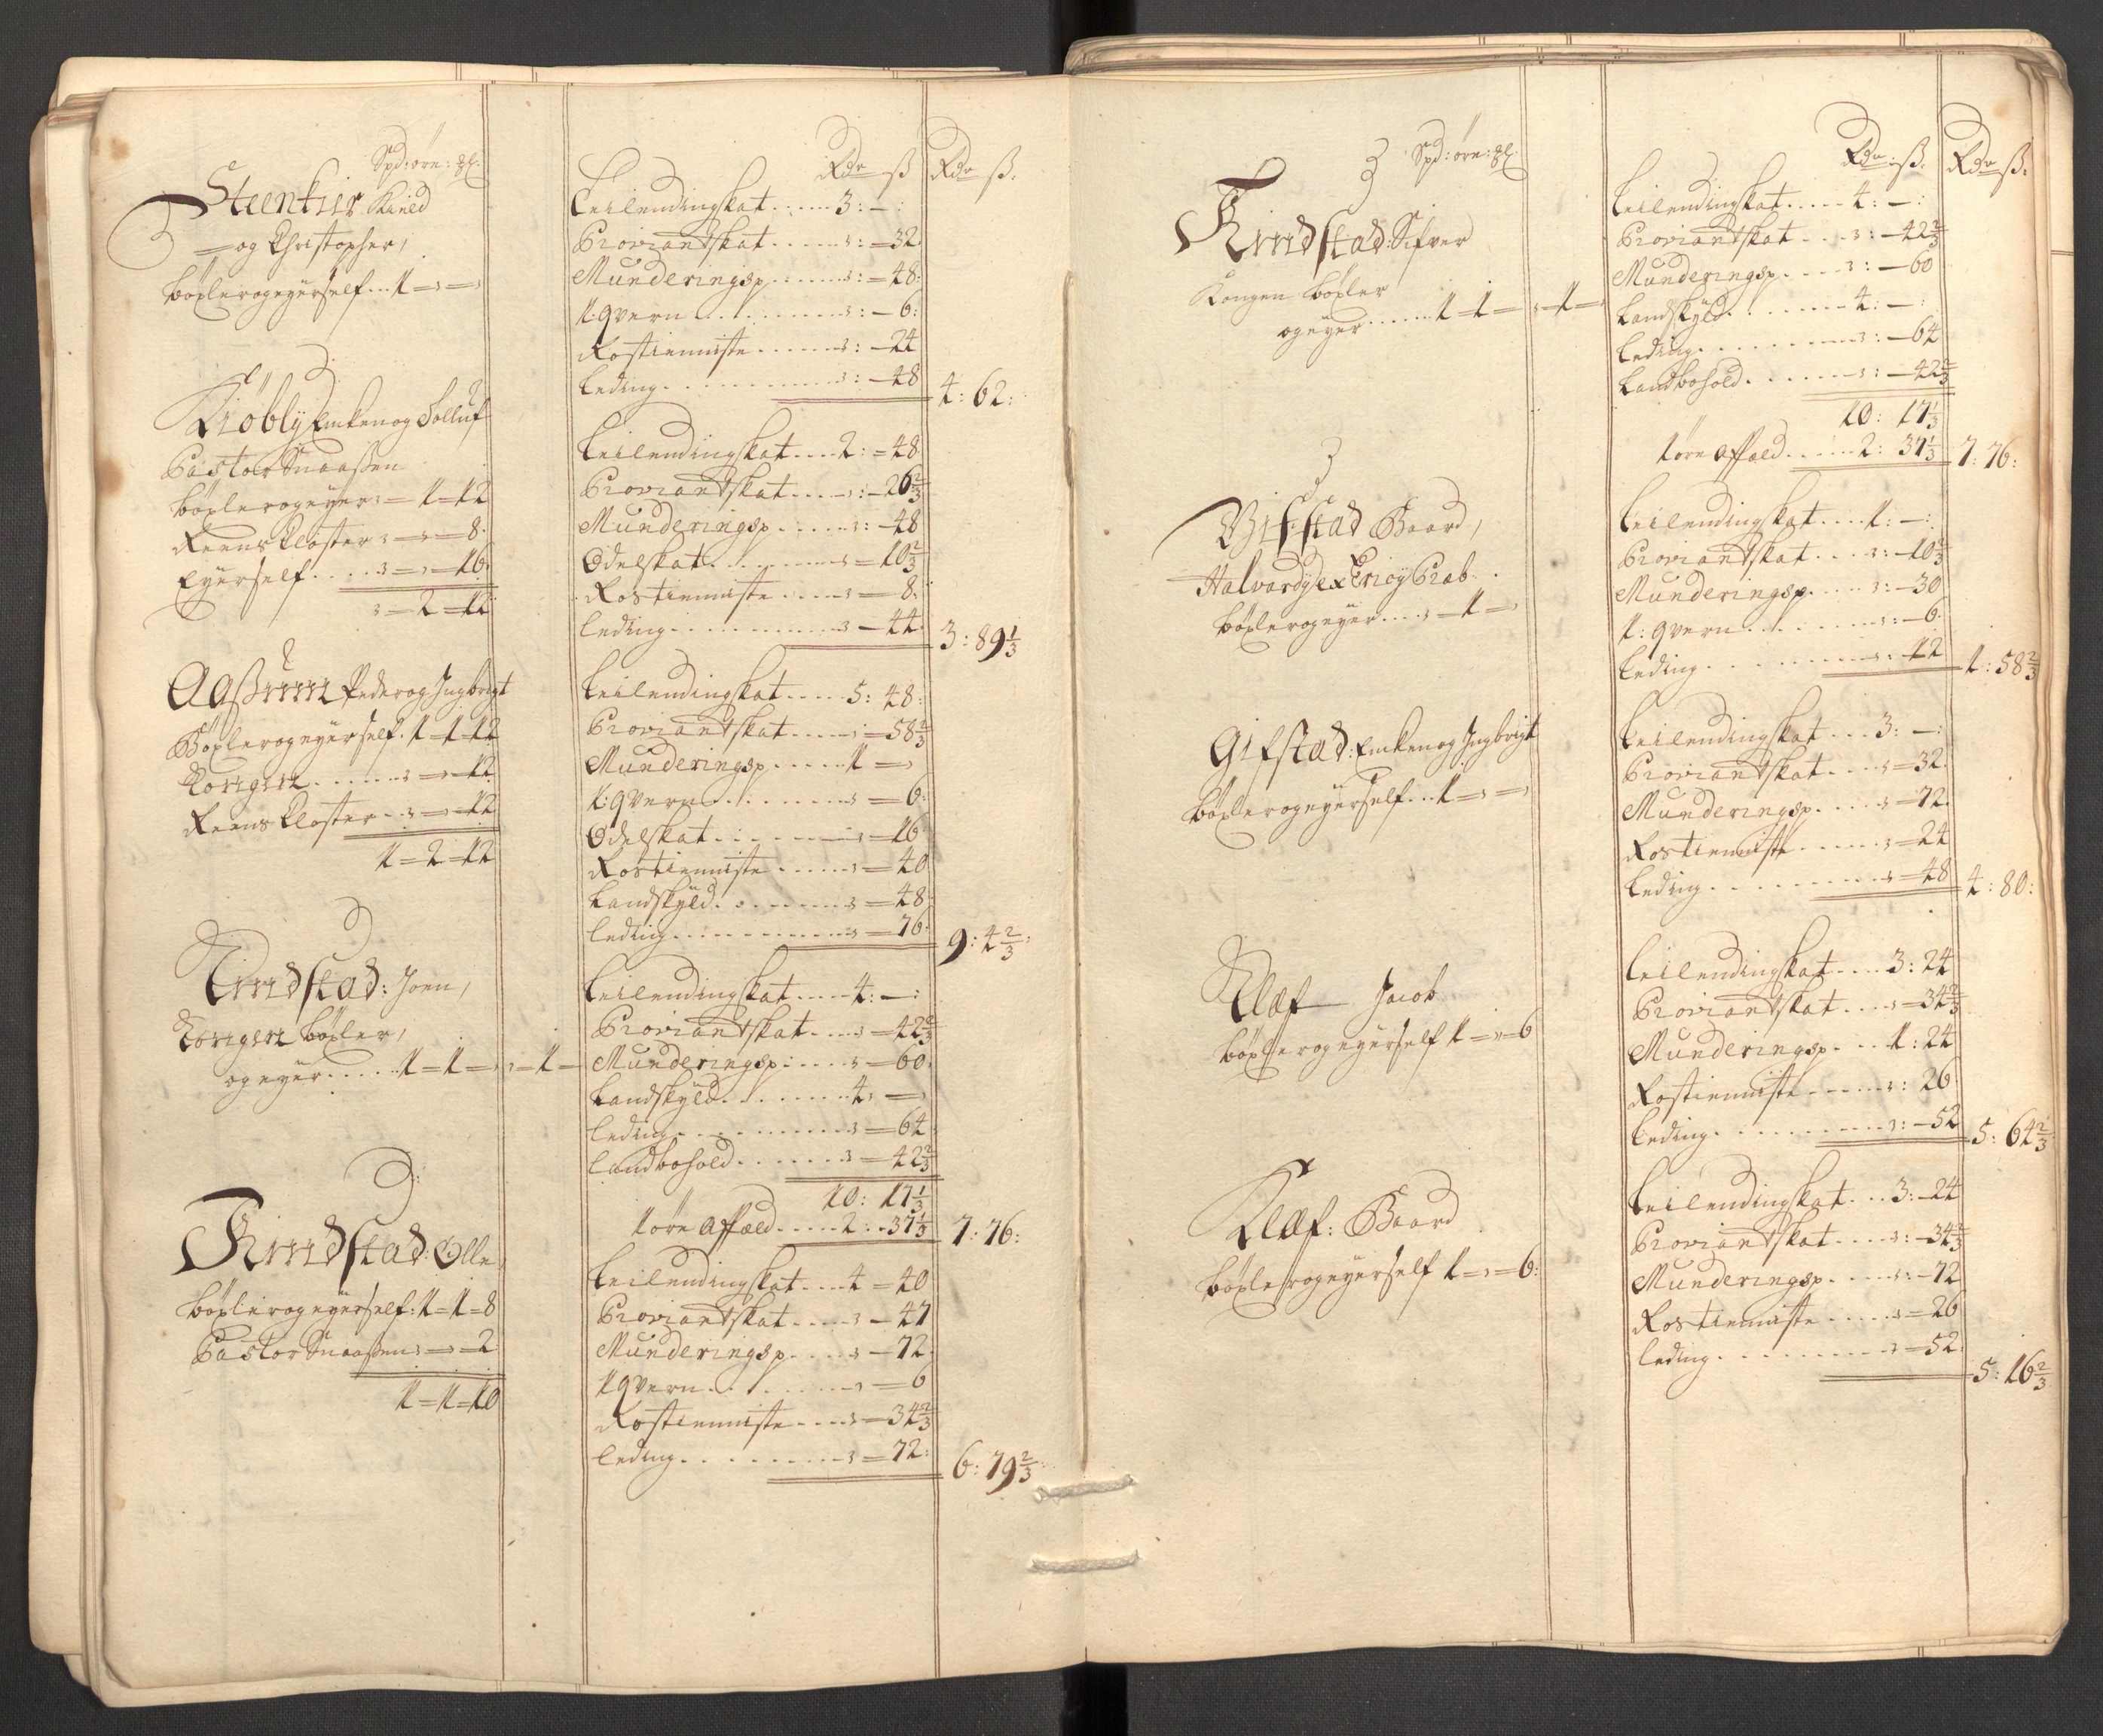 Spd: øre: ℔:
Steenkier Knud
og Christopher,
böxler og eyer self... 1 = " = "
Kiöbly Encken og Sollüf
Pastor Snaaßen
böxler og eyer: = 1 = 12
Reens Closter " = " = 8:
Eyer self.... " = " = 16:
" = 2 = 12
Agßum Peder og Ingbrigt
Böxler og eyer self. 1 = 1 = 12
Kongen...... " = " = 12
Reens Closter.. " = " = 12
1 = 2 = 12
Rindstad: Joen,
Kongen böxler,
og eyer..... 1 = 1 = " " = 1 =
Rindstad: Olle
böxler og eyer self: 1 = 1 = 8
Pastor Snaaßen " = " = 2
1 = 1 = 10
Rdr ß Rdr ß:
Leilendingskat..... 3: — :
Proviantskat...... " : — 32
Munderingsp...... " : = 48:
1: qvern.......... " : — 6:
Rostienniste...... " : — 24
Leding........... " : — 48 4: 62:
Leilendingskat.... 2: = 48
Proviantskat.... " : — 26 2/3
Munderingsp..... " : — 48
Odelskat........ " = 10 2/3
Rostienniste..... " — 8:
leding........... " — 44 3: 89 1/3
Leilendingskat..... 5: 48:
Proviantskat..... " = 58 2/3
Munderingsp..... 1 = "
1: qvern......... " = 6:
Odelskat......... " = 16
Rostienniste..... " = 40
Landskyld........ " = 48:
leding........... " = 76: 9: 4 2/3:
Leilendingskat.... 4: — :
Proviantskat.... " = 42 2/3
Munderingsp:.... " = 60:
Landskyld........ 4: — "
leding........... " = 64
Landbohold....... " = 42 2/3
10: 17 1/3
1 øre Affæld..... 2: 37 1/3 7: 76:
Leilendingskat.... 4 = 40
Proviantskat.... " — 47
Munderingsp.... " — 72
1 qvern......... " = 6
Rostienniste.... " = 34 2/3
leding.......... " = 72: 6: 79 2/3:
Spd: øre: ℔:
Rindstad: Sifver
Kongen böxler
og eyer...... 1 = 1 = " = 1 = "
Vifstad Baard,
Halvard
böxler og eyer.... " = 1 = "
Gifstad: Encken og Ingbrigt
böxler og eyer self... 1 = " = "
Klæf Jacob
böxler og eyer self 1 = " = 6
Klæf: Baard
böxler og eyer self 1 = " = 6:
Rdr: ß: Rdr ß:
Leilendingskat..... 4: — :
Proviantskat.... " : — 42 2/3
Munderingsp.... " : — 60
Landskyld....... 4: — :
Leding.......... " : — 64
Landbohold...... " : — 42 2/3
10: 17 1/3
1 øre Affæld..... 2: 37 1/3 7: 76:
Leilendingskat.... 1: — :
Proviantskat... " : — 10 2/3
Munderingsp.... " : — 30
1: qvern........ " : — 6:
Leding.......... " : 12 1: 58 2/3
Leilendingskat... 3: — :
Proviantskat.... " = 32:
Munderingsp.... " = 72:
Rostienniste..... " = 24
Leding.......... " = 48 4: 80:
Leilendingskat.... 3: 24
Proviantskat.... " = 34 2/3
Munderingsp.... 1: 24
Rostienniste..... " : 26
Leding.......... " : — 52 5: 64 2/3
Leilendingskat... 3: 24
Proviantskat.... " : — 34 2/3
Munderingsp.... " : — 72
Rostienniste..... " = 26
leding.......... " = 52: 5: 16 2/3